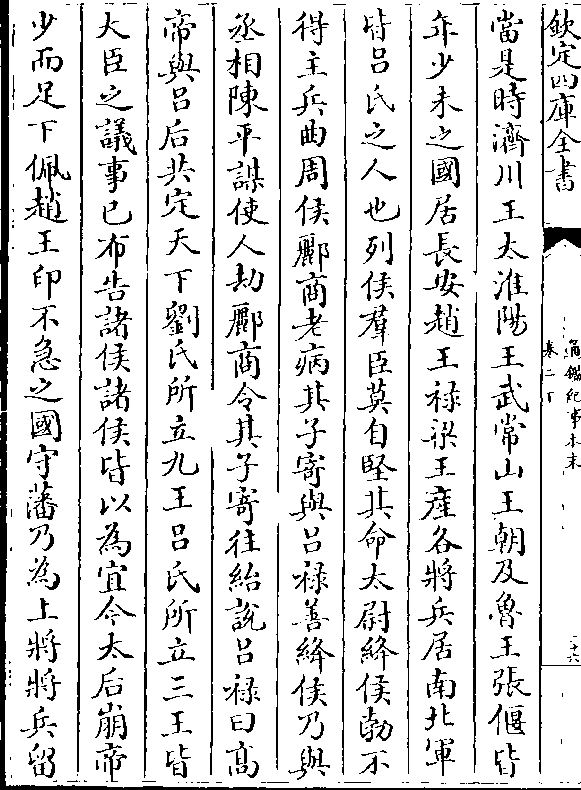 欽定四庫全書
通鑑紀事本末
卷二下
二十六
當是時濟川王太淮陽王武常山王朝及魯王張偃皆
年少未之國居長安趙王祿梁王產各將兵居南北軍
皆呂氏之人也列侯羣臣莫自堅其命太尉絳侯勃不
得主兵曲周侯酈商老病其子寄與呂祿善絳侯乃與
丞相陳平謀使人劫酈商令其子寄往紿說呂祿曰高
帝與呂后共定天下劉氏所立九王呂氏所立三王皆
大臣之議事已布告諸侯諸侯皆以為宜今太后崩帝
少而足下佩趙王印不急之國守藩乃為上將將兵留